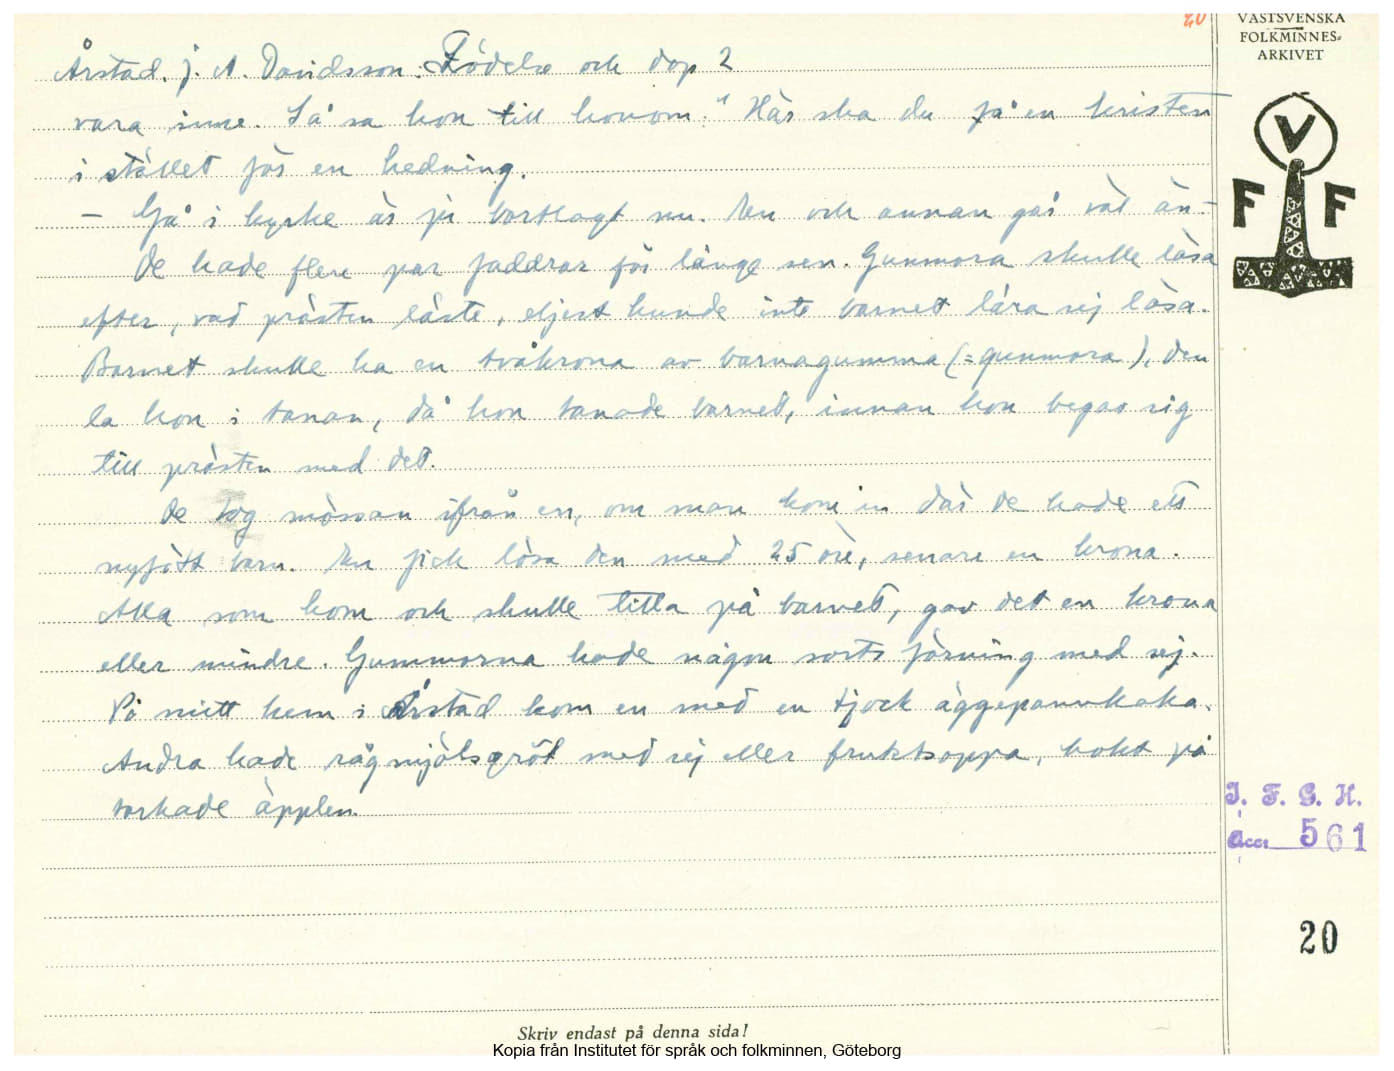 20
VÄSTSVENSKA
FOLKMINNES-
ARKIVET
Årstad. J. A. Davidsson. Födelse och dop 2
vara inne. Så sa hon till honom: "Här ska du få en kristen
i stället för en hedning.
- Gå i kyrke är ju bortlagt nu. En och annan gör väl än.-
De hade flere par faddrar för länge sen. Gunmora skulle läsa
efter, vad prästen läste, eljest kunde inte barnet lära sej läsa.
Barnet skulle ha en tvåkrona av barnagumma (= gunmora), den
la hon i tanan, då hon tanade barnet, innan hon begav sig
till prästen med det.
De tog mössan ifrån en, om man kom in där de hade ett
nyfött barn. En fick lösa den med 25 öre, senare en krona.
Alla som kom och skulle titta på barnet, gav det en krona
eller mindre. Gummorna hade någon sorts förning med sej.
På mitt hem i Årstad kom en med en tjock äggepannkaka.
Andra hade rågmjölsgröt med sej eller fruktsoppa, kokt på
torkade äpplen.
V
F F
I. F. G. H.
Acc: 561
20
Skriv endast på denna sida!
Kopia från Institutet för språk och folkminnen, Göteborg